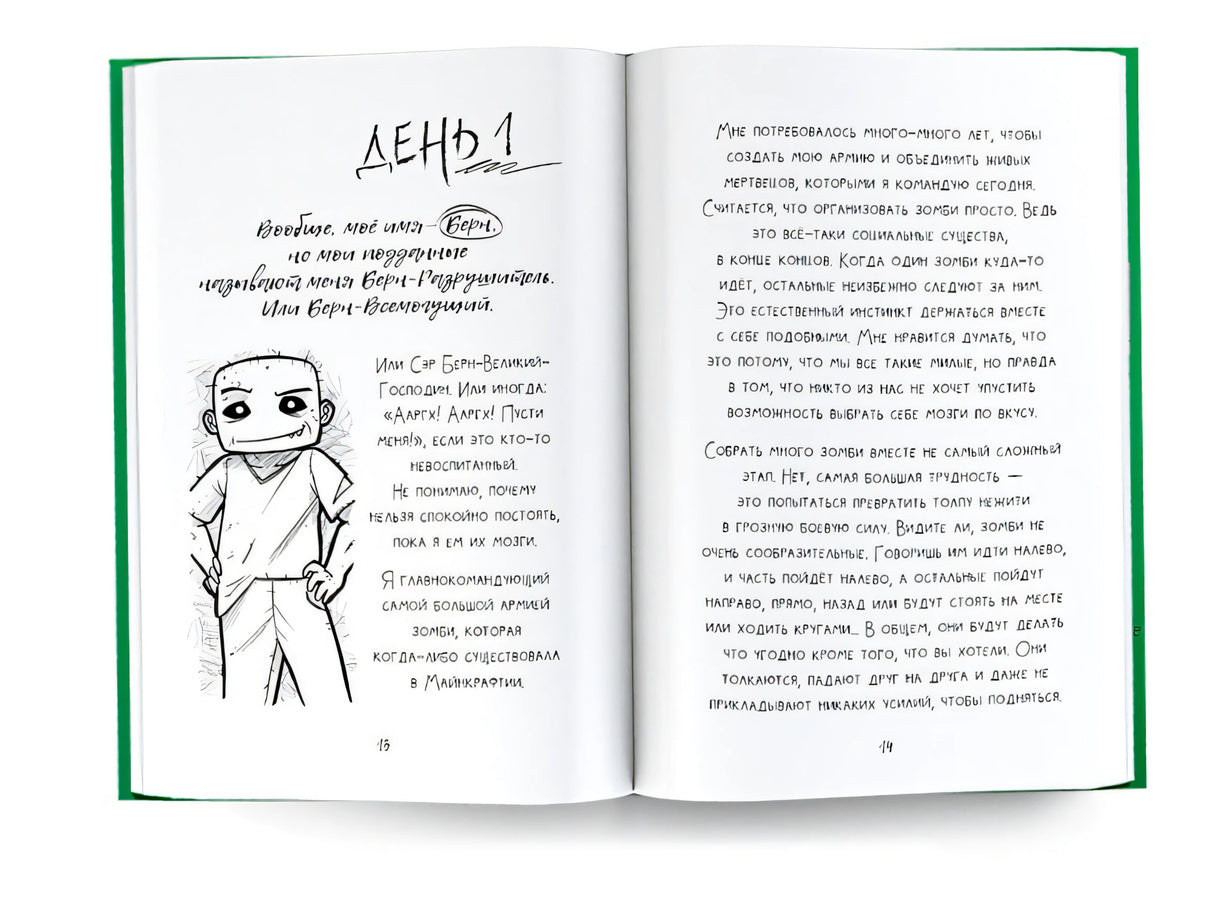 ДЕНЬ 1
Вообще, моё имя – Берн,
но мои подданные
называют меня Берн-Разрушитель.
Или Берн-Всемогущий.
Или Сэр Берн-Великий-
Господин. Или иногда:
«Ааргх! Ааргх! Пусти
меня!», если это кто-то
невоспитанный.
Не понимаю, почему
нельзя спокойно постоять,
пока я ем их мозги.
Я главнокомандующий
самой большой армией
зомби, которая
когда-либо существовала
в Майнкрафтии.
13
Мне потребовалось много-много лет, чтобы
создать мою армию и объединить живых
мертвецов, которыми я командую сегодня.
Считается, что организовать зомби просто. Ведь
это всё-таки социальные существа,
в конце концов. Когда один зомби куда-то
идёт, остальные неизбежно следуют за ним.
Это естественный инстинкт держаться вместе
с себе подобными. Мне нравится думать, что
это потому, что мы все такие милые, но правда
в том, что никто из нас не хочет упустить
возможность выбрать себе мозги по вкусу.
Собрать много зомби вместе не самый сложный
этап. Нет, самая большая трудность —
это попытаться превратить толпу нежити
в грозную боевую силу. Видите ли, зомби не
очень сообразительные. Говоришь им идти налево,
и часть пойдёт налево, а остальные пойдут
направо, прямо, назад или будут стоять на месте
или ходить кругами... В общем, они будут делать
что угодно кроме того, что вы хотели. Они
толкаются, падают друг на друга и даже не
прикладывают никаких усилий, чтобы подняться.
14